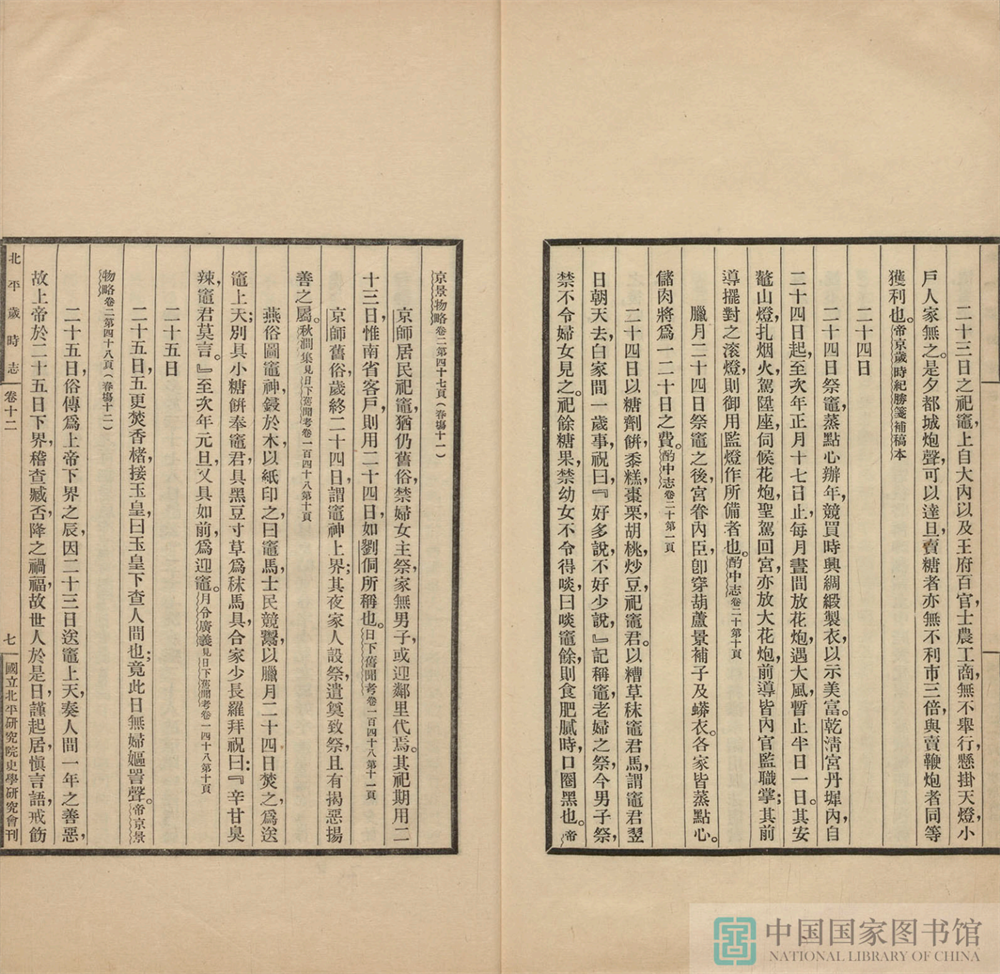 二十三日之祀竈，上自大內以及王府百官士農工商，無不舉行，懸掛天燈，小
戶人家無之。是夕都城炮聲，可以達旦，賣糖者亦無不利市三倍，與賣鞭炮者同等
獲利也。帝京歲時紀勝箋補稿本
二十四日
二十四日祭竈，蒸點心辦年，競買時興綢緞製衣，以示美富。乾淸宮丹墀內，自
二十四日起，至次年正月十七日止，每月晝間放花炮，遇大風，暫止半日一日。其安
鼇山燈，扎烟火，駕陞座，伺候花炮，聖駕回宮，亦放大花炮，前導皆內官監職掌；其前
導擺對之滾燈，則御用監燈作所備者也。酌中志卷二十第十頁
臘月二十四日祭竈之後，宮眷內臣，卽穿葫蘆景補子及蟒衣。各家皆蒸點心。
儲肉將爲一二十日之費。酌中志卷二十第一頁
二十四日以糖劑餅、黍糕、棗栗、胡桃、炒豆祀竈君。以糟草秣竈君馬，謂竈君翌
日朝天去，白家間一歲事，祝曰：『好多說，不好少說，』記稱竈老婦之祭，今男子祭，
禁不令婦女見之。祀餘糖果，禁幼女不令得啖，曰啖竈餘，則食肥膩時，口圈黑也。帝
京景物略卷二第四十七頁（春塲十一）
京師居民祀竈，猶仍舊俗，禁婦女主祭，家無男子，或迎鄰里代焉。其祀期用二
十三日，惟南省客戶，則用二十四日，如劉侗所稱也。日下舊聞考卷一百四十八第十一頁
京師舊俗，歲終二十四日，謂竈神上界；其夜家人設祭，遣奠致祭，且有揭惡揚
善之屬。秋澗集見日下舊聞考卷一百四十八第十頁
燕俗圖竈神，鋟於木，以紙印之，曰竈馬，士民競鬻，以臘月二十四日焚之，爲送
竈上天；別具小糖餅奉竈君，具黑豆寸草爲秣馬具，合家少長羅拜，祝曰：『辛甘臭
辣，竈君莫言。』至次年元旦，又具如前，爲迎竈。月令廣義見日下舊聞考卷一四十八第十頁
二十五日
二十五日，五更焚香楮，接玉皇，曰玉皇下查人間也；竟此日無婦嫗詈聲。帝京景
物略卷二第四十八頁（春塲十二）
二十五日，俗傳爲上帝下界之辰，因二十三日送竈上天，奏人間一年之善惡，
故上帝於二十五日下界，稽查臧否，降之禍福，故世人於是日，謹起居，愼言語，戒飭
北平歲時志
卷十二
七
國立北平研究院史學研究會刊
中国国家图书馆
NATIONAL LIBRARY OF CHINA